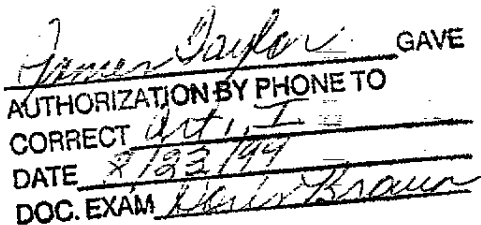 James Taylor GAVE
AUTHORIZATION BY PHONE TO
CORRECT Art. I
DATE 2/23/94
DOC. EXAM Doris Brown